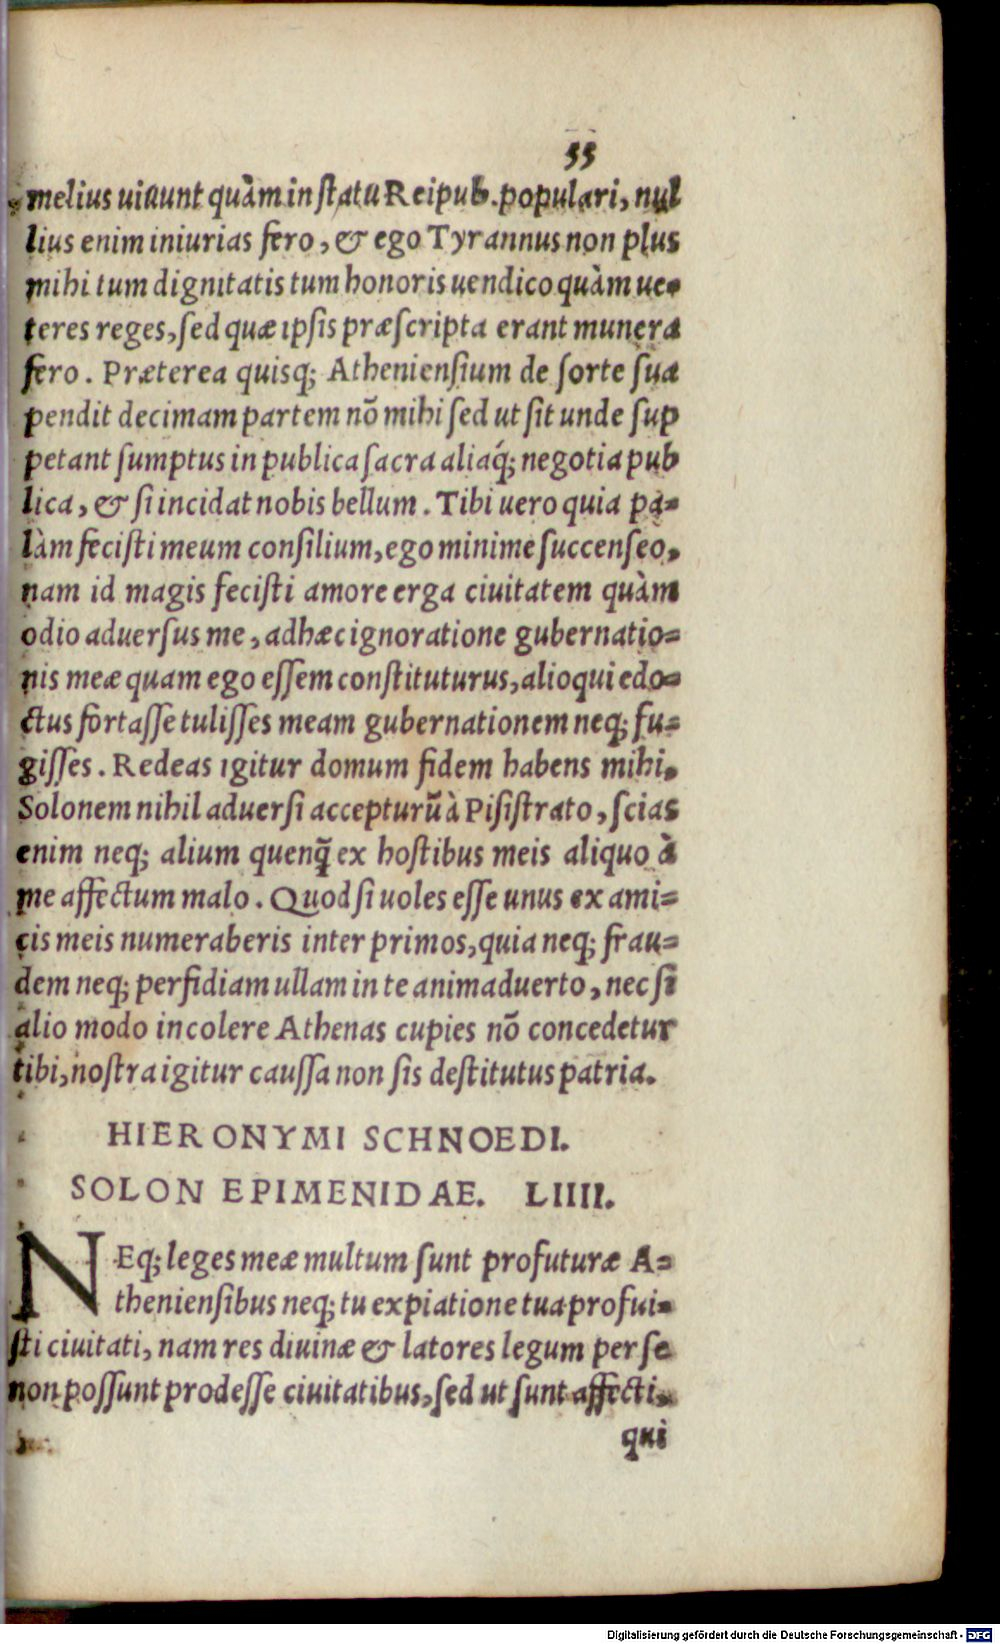 55
melius uiuunt quàm in statu Reipub. populari, nul
lius enim iniurias fero, & ego Tyrannus non plus
mihi tum dignitatis tum honoris uendico quàm ue=
teres reges, sed quæ ipsis præscripta erant munera
fero. Præterea quisq; Atheniensium de sorte sua
pendit decimam partem nõ mihi sed ut sit unde sup
petant sumptus in publica sacra aliaq́; negotia pub
lica, & si incidat nobis bellum. Tibi uero quia pa=
làm fecisti meum consilium, ego minime succenseo,
nam id magis fecisti amore erga ciuitatem quàm
odio aduersus me, adhæc ignoratione gubernatio=
nis meæ quam ego essem constituturus, alioqui edo=
ctus fortasse tulisses meam gubernationem neq; fu=
gisses. Redeas igitur domum fidem habens mihi,
Solonem nihil aduersi accepturũ à Pisistrato, scias
enim neq; alium quenq̃ ex hostibus meis aliquo à
me affectum malo. Quod si uoles esse unus ex ami=
cis meis numeraberis inter primos, quia neq; frau=
dem neq; perfidiam ullam in te animaduerto, nec si
alio modo incolere Athenas cupies nõ concedetur
tibi, nostra igitur caussa non sis destitutus patria.
HIERONYMI SCHNOEDI.
SOLON EPIMENIDAE. LIIII.
NEq; leges meæ multum sunt profuturæ A=
theniensibus neq; tu expiatione tua profui=
sti ciuitati, nam res diuinæ & latores legum per se
non possunt prodesse ciuitatibus, sed ut sunt affecti,
qui
Digitalisierung gefördert durch die Deutsche Forschungsgemeinschaft - DFG